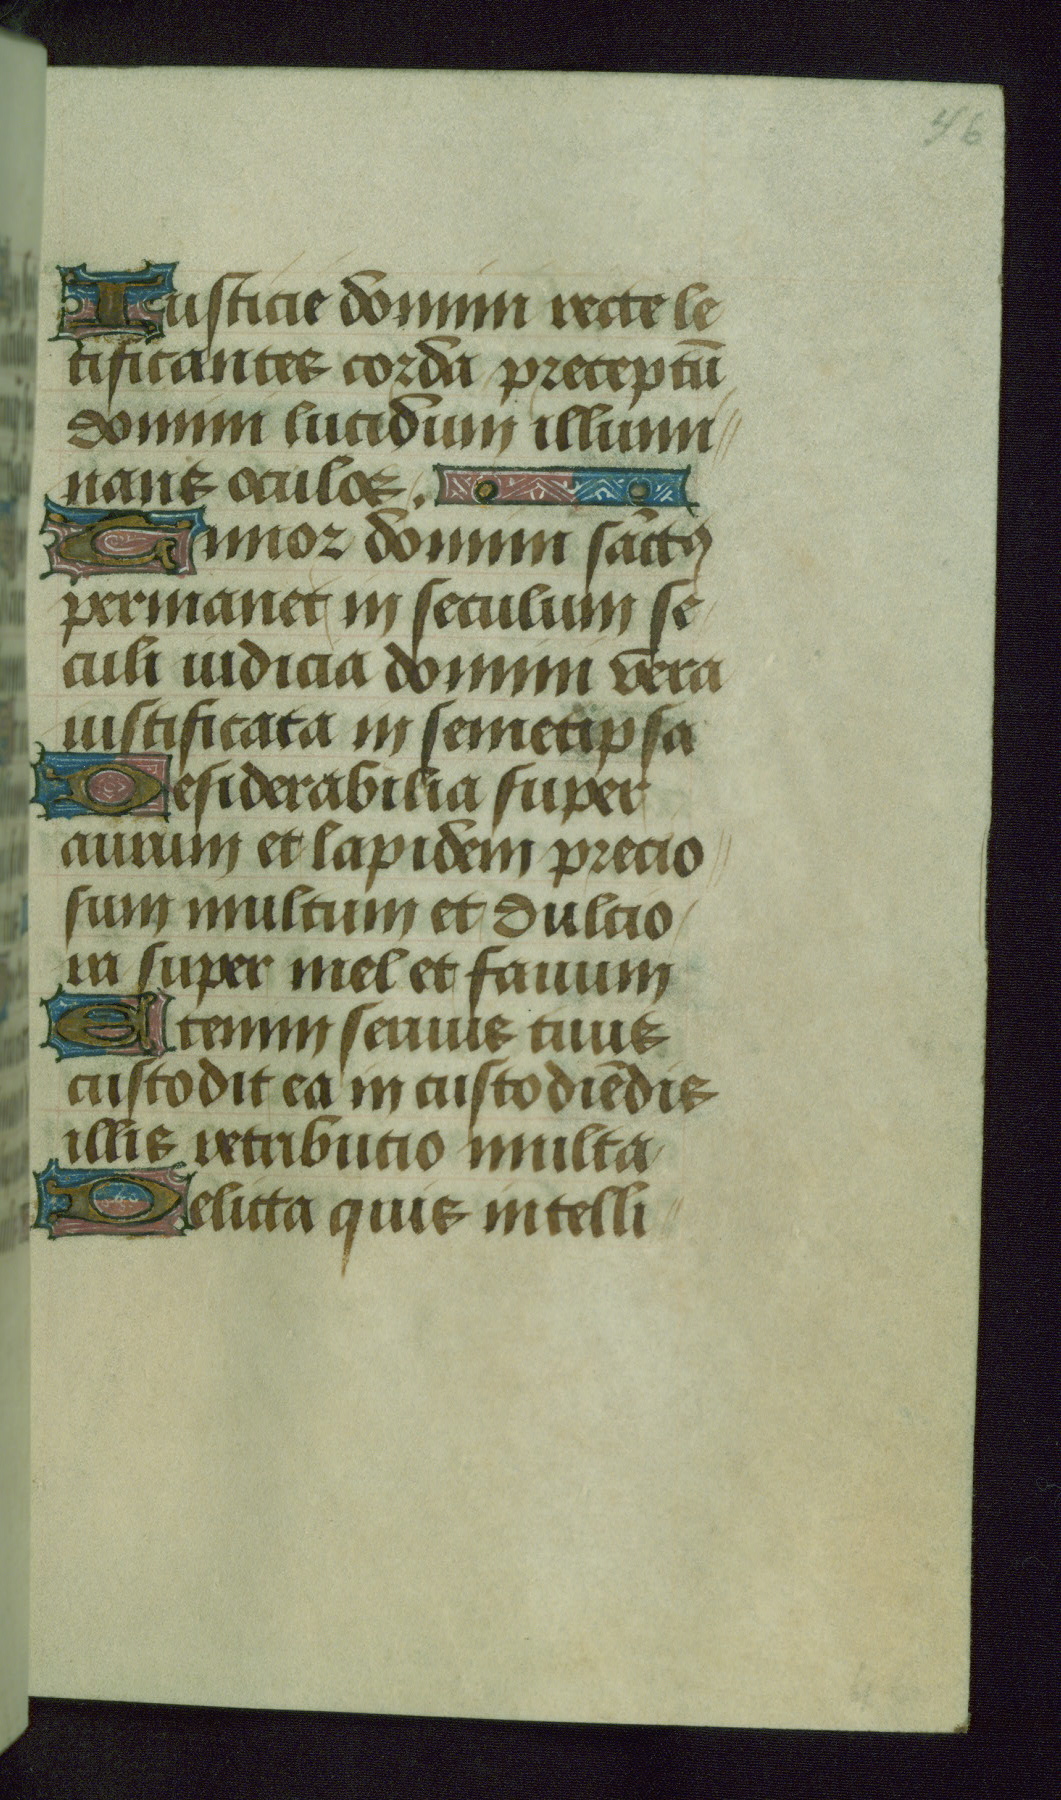 46
Iusticie domini recte le
tificantes corda preceptū
domini lucidum illumi
nans oculos.
Timor domini sāctꝰ
permanet in seculum se
culi iudicia domini vera
iustificata in semetipsa
Desiderabilia super
aurum et lapidem precio
sum multum et dulcio
ra super mel et fauum
Etenim seruus tuus
custodit ea in custodiēdis
illis retributio multa
Delicta quis intelli